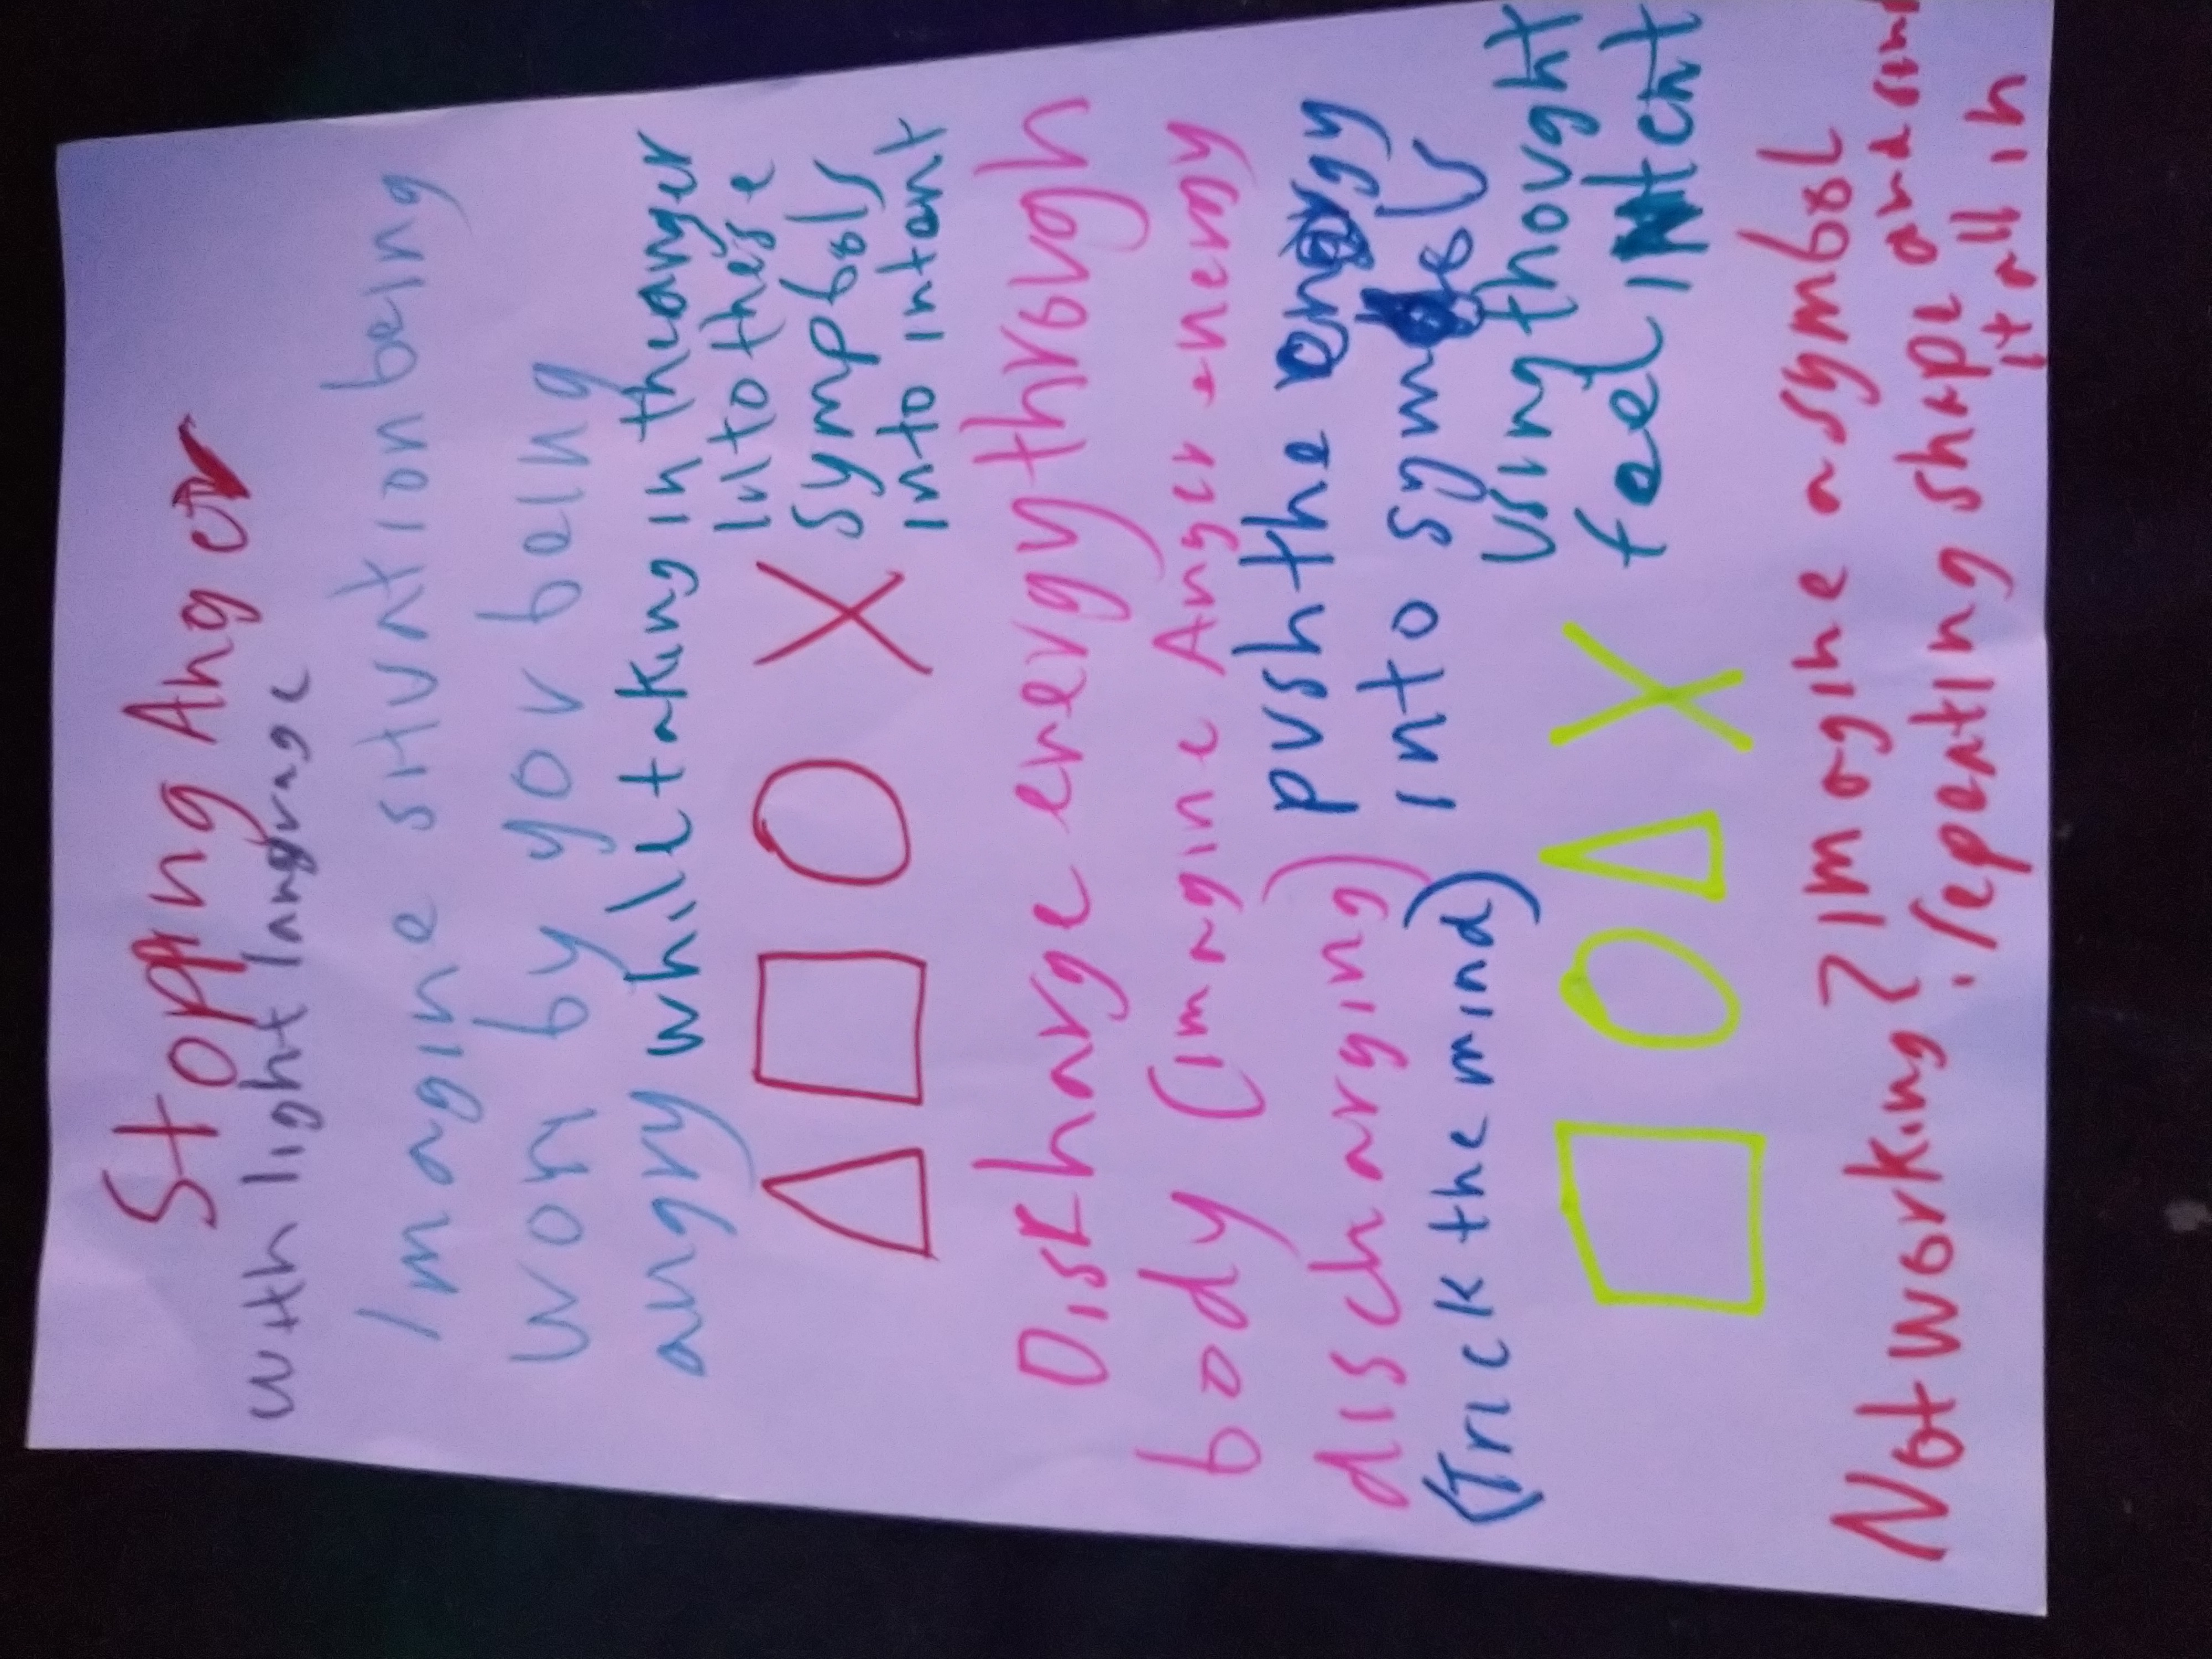 Stopping Anger
with light language
Imagine situation being
won by you being
angry while taking in th anger
into these
sympbols
into intent
Disharge energy through
body (imagine Anger energy
discharging) push the energy
(trick the mind) into symbols
using thought
feel intent
Not working? Imagine a symbol
spitting shpit and
it all